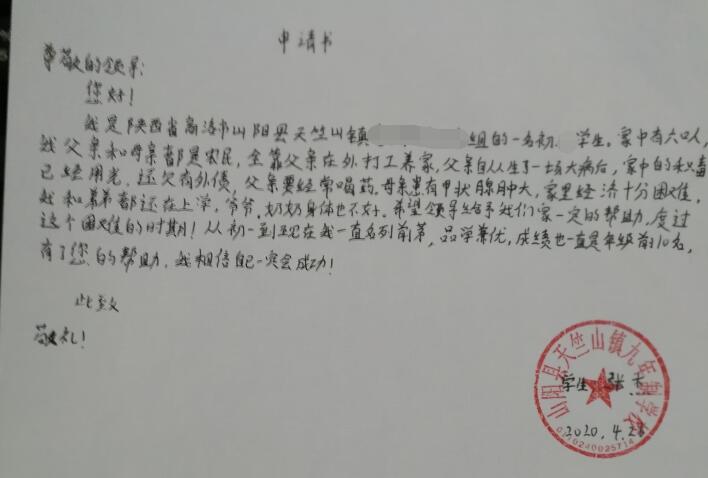 申请书
尊敬的领导:
您好!
我是陕西省商洛市山阳县天竺山镇组的一名初学生。家中有六口人,
我父亲和母亲都是农民,全靠父亲在外打工养家,父亲自从生了一场大病后,家中的积蓄
已经用光,还欠有外债,父亲要经常喝药,母亲患有甲状腺肿大,家里经济十分困难,
我和弟弟都还在上学,爷爷.奶奶身体也不好。希望领导给予我们家一定的帮助,度过
这个困难的时期!从初一到现在我一直名列前茅,品学兼优,成绩也一直是年级前10名,
有了您的帮助,我相信自己一定会成功!
此致
敬礼!
山阳县天竺山镇九年制学校
学生 张
2020.4.28